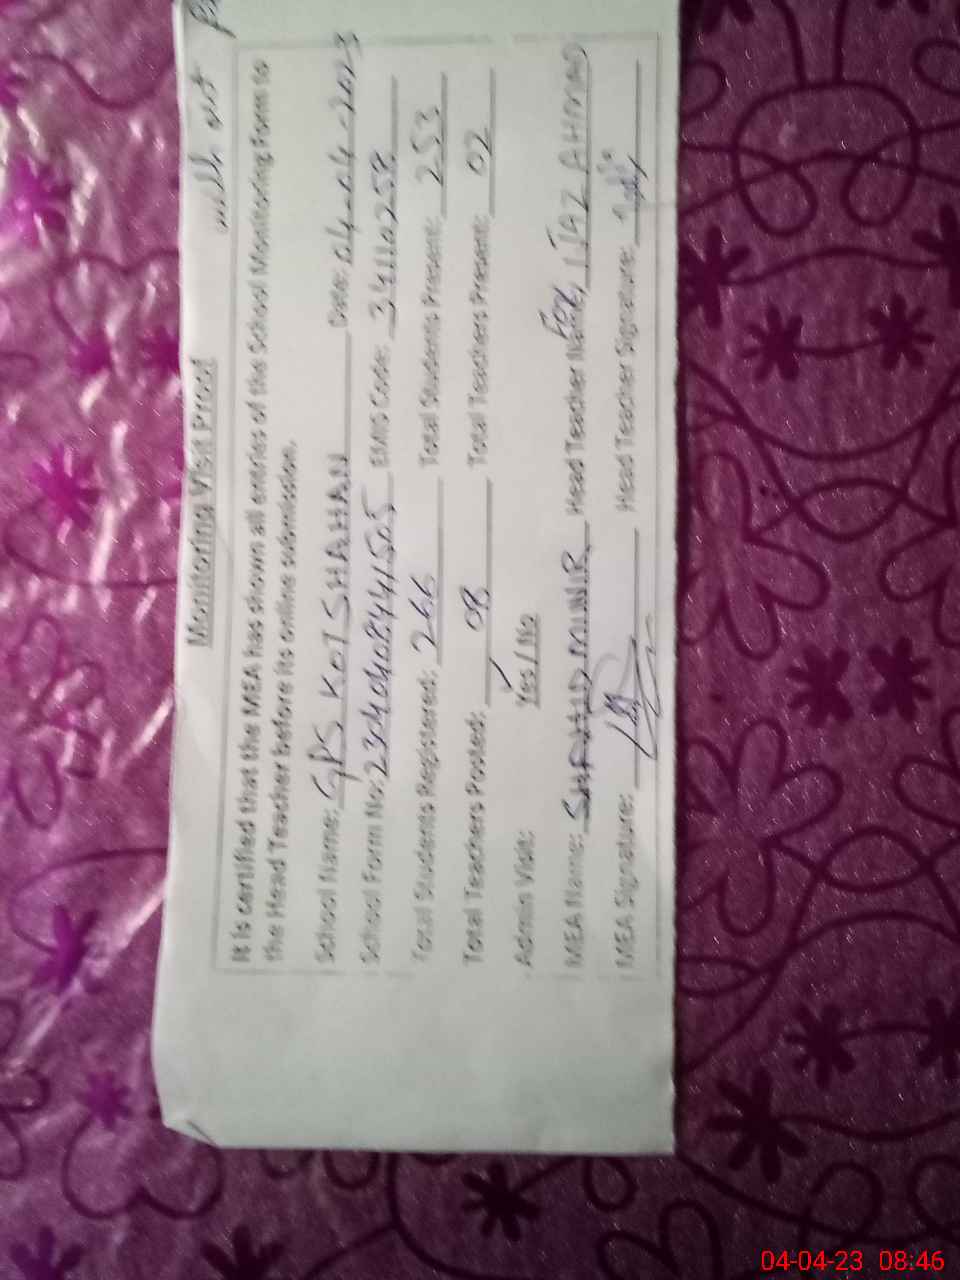 with out
Monitoring Visit Proof
It is certified that the MEA has shown all entries of the School Monitoring Form to
the Head Teacher before its online submission.
School Name: GPS KOT SHAHAN Date: 04-04-2023
School Form No: 23040408441505 EMIS Code: 34110258
Total Students Registered: 266 Total Students Present: 253
Total Teachers Posted: 08 Total Teachers Present: 02
Admin Visit: Yes / No
MEA Name: SHAHID MUNIR Head Teacher Name: For, IJAZ AHMAD
MEA Signature: Head Teacher Signature:
04-04-23 08:46